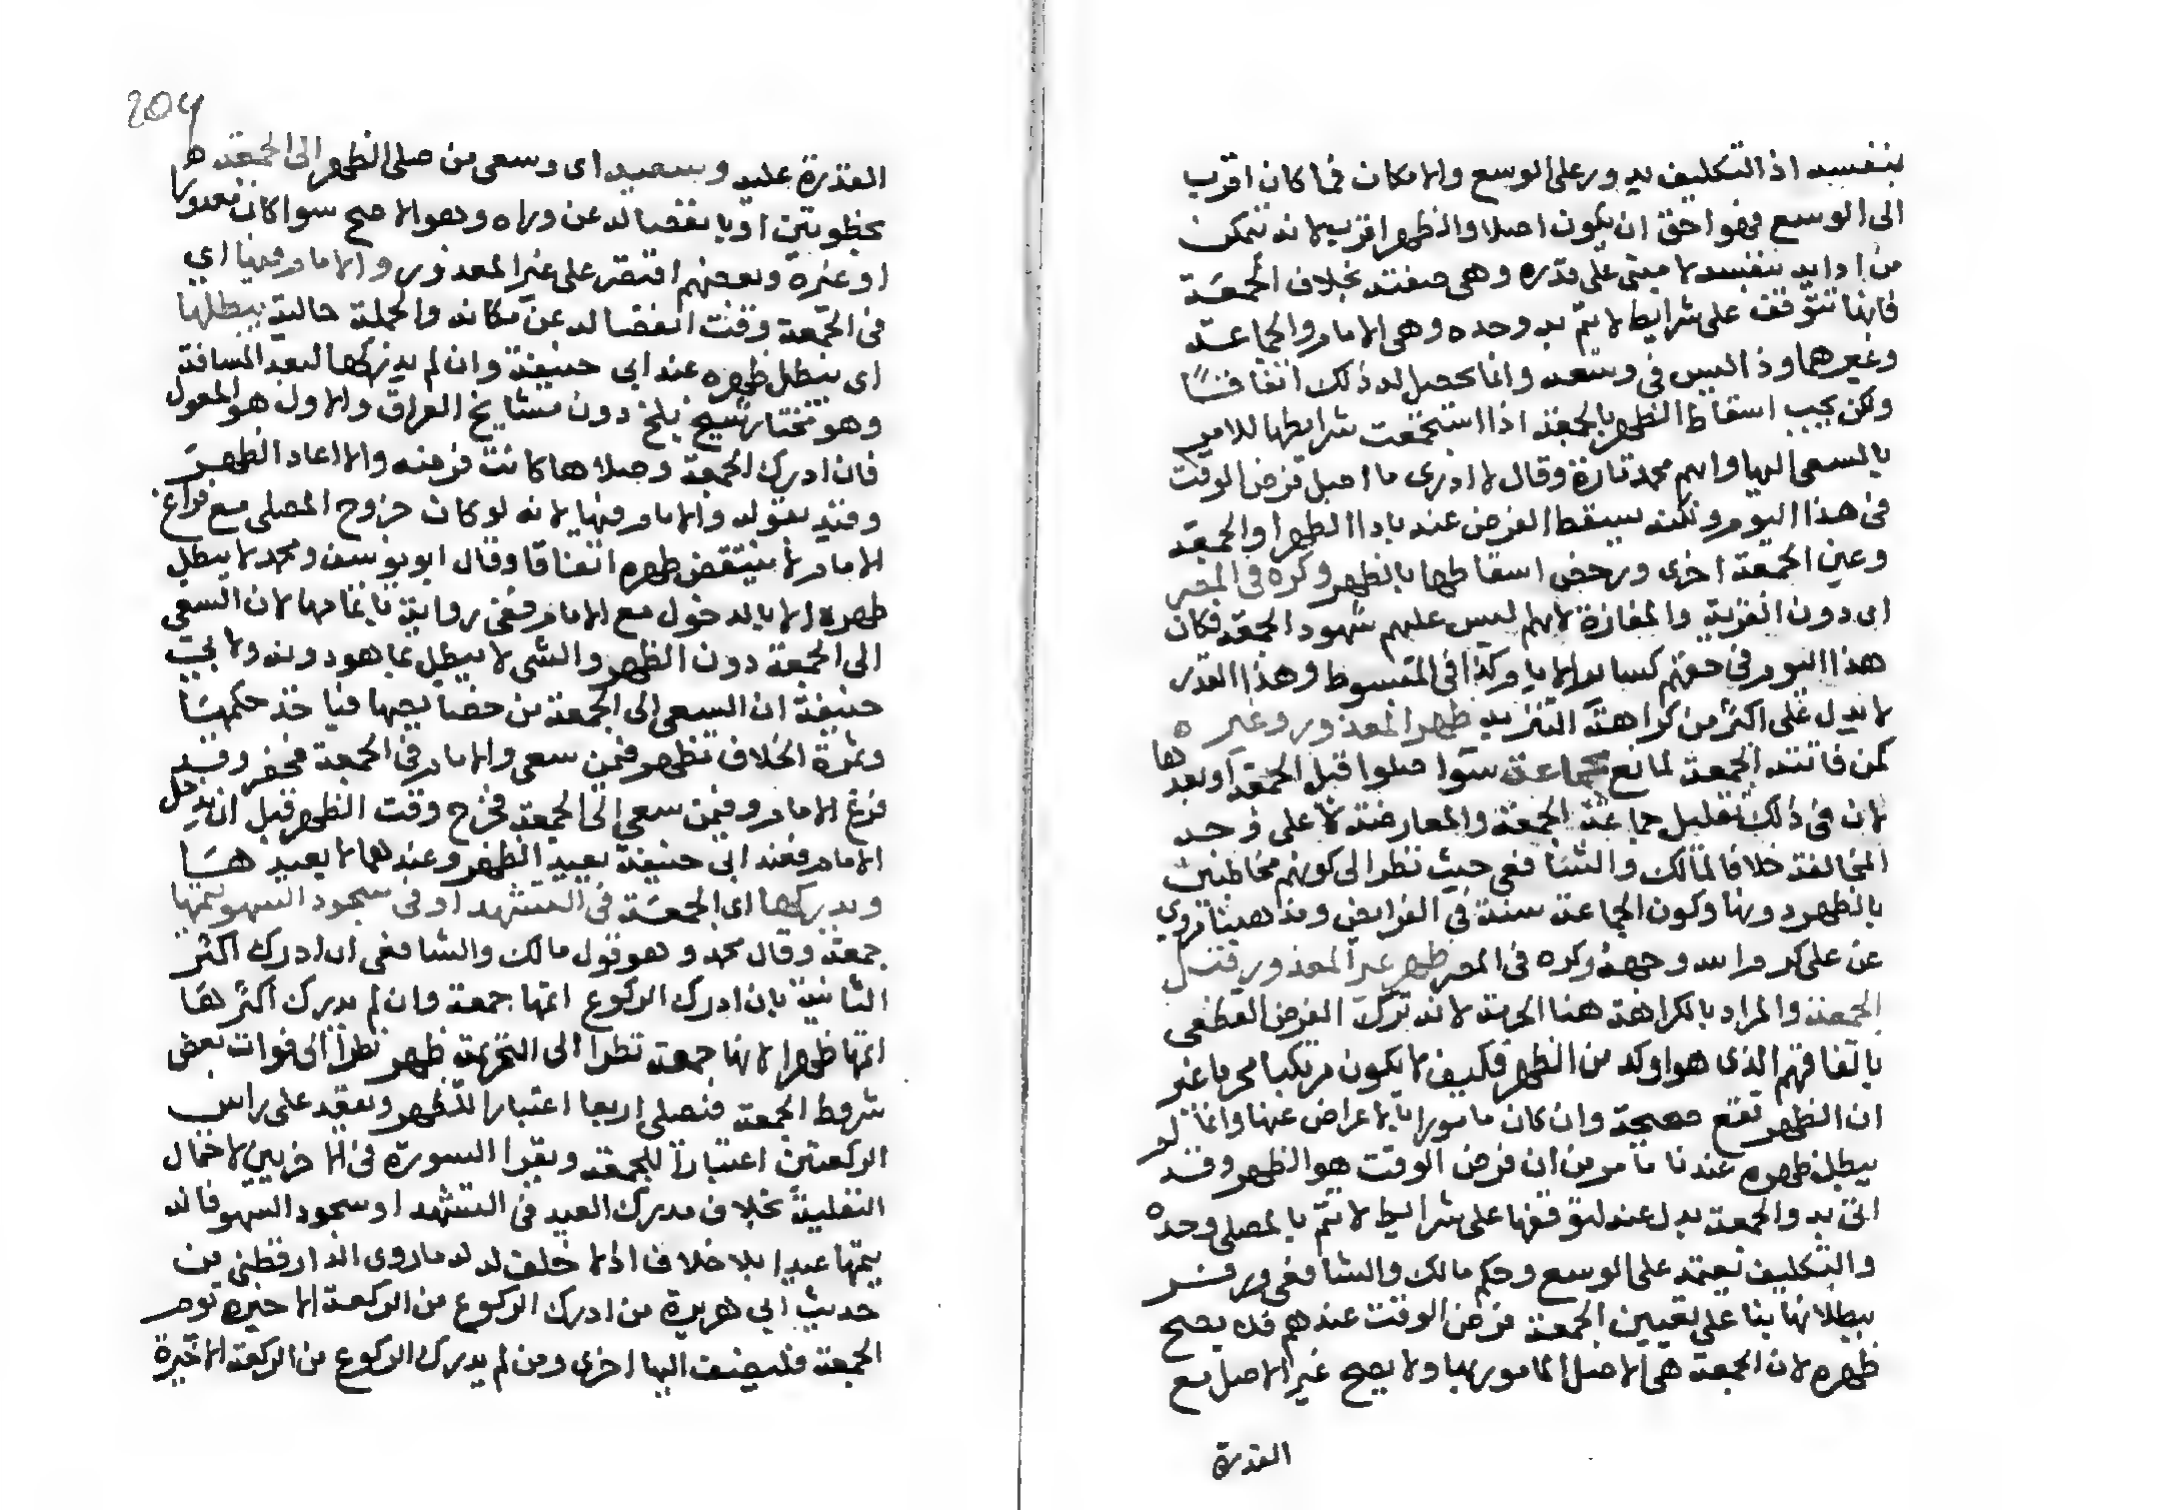 بنفسه اذ التكليف يدور على الوسع والامكان فما كان اقرب
الى الوسع فهو احق ان يكون اصلا والظهر اقرب لانه يتمكن
من ادايه بنفسه لا مبنى على قدره وهى صفته بخلاف الجمعة
فانها تتوقف على شرايط لا تتم به وحده وهى الامام والجماعة
وغيرهما وذا ليس فى وسعه وانما يحصل له ذلك اتفاقيا
ولكن يجب اسقاط الظهر بالجمعة اذا استجمعت شرايطها للامر
بالسعى اليها وابهم محمد تارة وقال لا ادرى ما اصل فرض الوقت
فى هذا اليوم ولكنه يسقط الفرض عنه باداا لظهر او الجمعة
وعين الجمعة اخرى ورخص اسقاطها بالظهر وكره فى المصر
اى دون القرية والمفازة لانهم ليس عليهم شهود الجمعة فكان
هذا اليوم فى حقهم كساير الايام وكذا فى المبسوط وهذا القدر
لا يدل على اكثر من كراهة التنزيه ظهر المعذور وغيره
كمن فاتته الجمعة لمانع بجماعة سوا صلوا قبل الجمعة او بعدها
لان فى ذلك تقليل جماعة الجمعة والمعارضة لا على وجه
المخالفة خلافا لمالك والشافعى حيث نظرا الى كونهم مخاطبين
بالظهر دونها وكون الجماعة سنة فى الفرايض ومذهبنا مروى
عن على كرم الله وجهه وكره فى المصر ظهر غير المعذور قبل
الجمعة والمراد بالكراهة هنا الحرمة لانه ترك الفرض القطعى
باتفاقهم الذى هو اوكد من الظهر فكيف لا يكون مرتكبا محرما غير
ان الظهر تقع صحيحة وان كان مامورا بالاعراض عنها وانما لم
يبطل ظهره عندنا ما مر من ان فرض الوقت هو الظهر وقد
اتى به والجمعة بدل عنه لتوقفها على شرايط لا تتم بالمصلى وحده
والتكليف يعتمد على الوسع وحكم مالك والشافعى وزفر
ببطلانها بنا على تعيين الجمعة فرض الوقت عندهم فلا يصح
ظهره لان الجمعة هى الاصل المامور بها ولا يصح غير الاصل مع
القدرة
204
القدرة عليه وسعيه اى وسعى من صلى الظهر الى الجمعة
بخطوتين او بانفصاله عن داره وهو الاصح سوا كان معذورا
او غيره وبعضهم اقتصر على غير المعذور والامام فيها اي
فى الجمعة وقت انفصاله عن مكانه والجملة حالية يبطلها
اى يبطل ظهره عند ابى حنيفة وان لم يدركها لبعد المسافة
وهو مختار شيخ بلخ دون مشايخ العراق والاول هو المعول
فان ادرك الجمعة وصلاها كانت فرضه والا اعاد الظهر
وقيد بقوله والامام فيها لانه لو كان خروج المصلى مع فراغ
الامام لا ينتقض ظهره اتفاقا وقال ابو يوسف ومحمد لا يبطل
ظهره الا بالدخول مع الامام وفى رواية باتمامها لان السعى
الى الجمعة دون الظهر والشى لا يبطل بما هو دونه ولابى
حنيفة ان السعى الى الجمعة من خصايصها فياخذ حكمها
وثمرة الخلاف تظهر فيمن سعى والامام فى الجمعة فحضر وقد
فرغ الامام وفيمن سعى الى الجمعة فخرج وقت الظهر قبل ان يدخل
الامام فعند ابى حنيفة يعيد الظهر وعندهما لا يعيدها
ومدركها اى الجمعة فى التشهد او فى سجود السهو يتمها
جمعة وقال محمد وهو قول مالك والشافعى ان ادرك اكثر
الثانية بان ادرك الركوع اتمها جمعة وان لم يدرك اكثرها
اتمها ظهرا لانها جمعة نظرا الى التحريمة ظهر نظرا الى فوات بعض
شروط الجمعة فيصلى اربعا اعتبارا للظهر ويقعد على راس
الركعتين اعتبارا للجمعة ويقرا السورة فى الاخريين لاحتمال
النفلية بخلاف مدرك العيد فى التشهد او سجود السهو فانه
يتمها عيدا بلا خلاف اذ لا خلف له له ما روى الدارقطنى من
حديث ابى هريرة من ادرك الركوع من الركعة الاخيرة يوم
الجمعة فليضف اليها اخرى ومن لم يدرك الركوع من الركعة الاخيرة